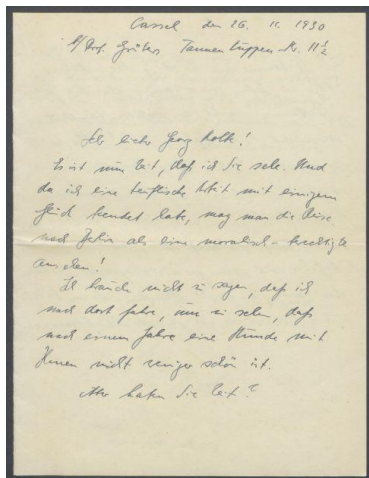 Cassel den 26. 11. 1930
b/Prof. Gräber Tannenkuppen-Str. 11½
Sehr lieber Georg Kolbe!
Es ist nun Zeit, daß ich Sie sehe. Und
da ich eine teuflische Arbeit mit einigem
beendet habe, mag man die Reise
nach Berlin als eine moralisch-berechtigte
ansehen!
Ich brauche nicht zu sagen, daß ich
nach dort fahre, um zu sehen, daß
nach einem Jahre eine Stunde mit
Ihnen nicht weniger schön ist.
Aber haben Sie Zeit?